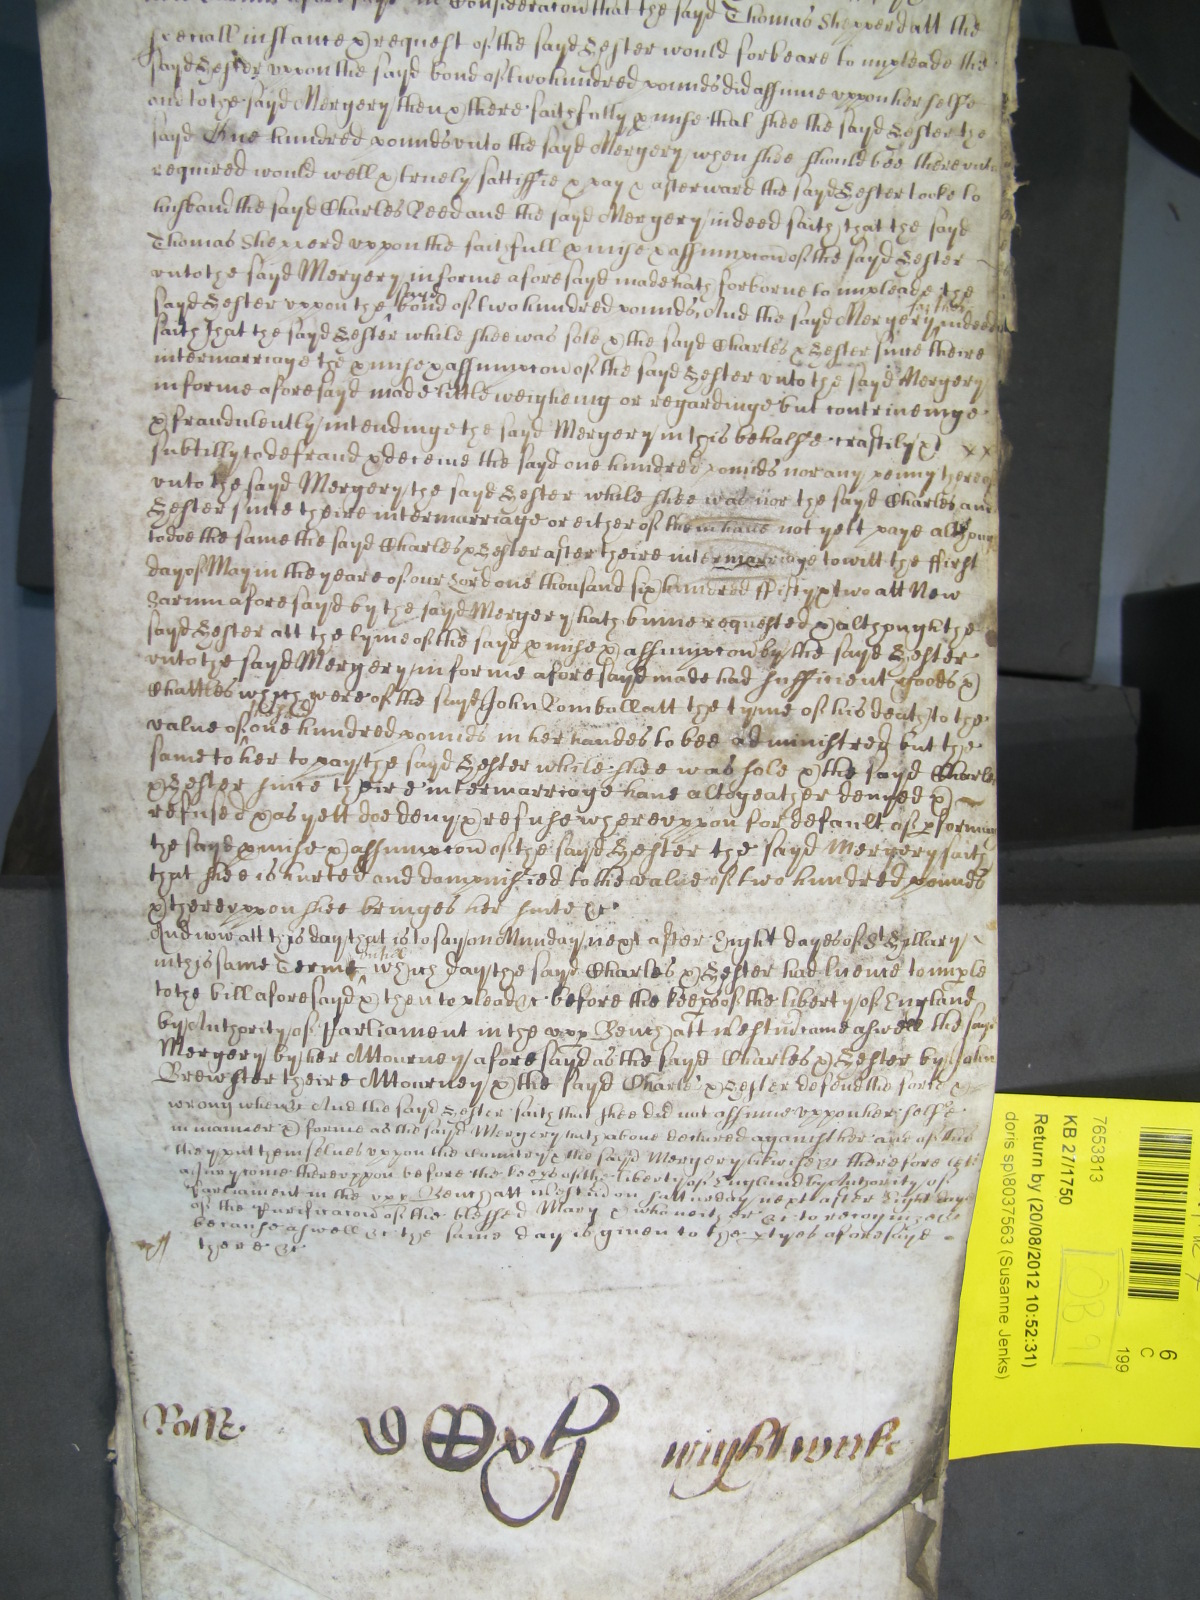 in Consideracon that the sayd Thomas Shepperd att the
speciall instance & request of the sayd Hester would forbeare to impleade the
sayd Hester uppon the sayd bond of two hundred pounds did assume uppon her selfe
and to the sayd Mergery then & there faithfully pmise that shee the sayd Hester the
sayd One hundred pounds unto the sayd Mergery when shee should bee thereunto
required would well & truely sattisfie & pay & afterward the sayd Hester tooke to
husband the sayd Charles Reed and the sayd Mergery indeed saith that the sayd
Thomas Shepperd uppon the faithfull pmise & assumpcon of the sayd Hester
unto the sayd Mergery in forme aforesayd made hath forborne to impleade the
sayd Hester uppon the sayd bond of two hundred pounds, And the sayd Mergery further indeed
saith That the sayd Hester while shee was sole & the sayd Charles & Hester since theire
intermarriage the pmise & assumpcon of the sayd Hester unto the sayd Mergery
in forme aforesayd made little weigheing or regardinge but contriveinge
& fraudulently intendinge the sayd Mergery in this behalfe craftily &
subtilly to defraud & deceive the sayd one hundred pounds nor any penny thereof
unto the sayd Mergery the sayd Hester while shee was nor the sayd Charles and
Hester since theire intermarriage or either of them have not yett paye although
to doe the same the sayd Charles & Hester after theire intermarriage to witt the ffirst
day of May in the yeare of our Lord one thousand six hundred ffifty & two att New
Sarum aforesayd by the sayd Mergery hath binne requested & although the
sayd Hester att the tyme of the sayd pmise & assumpcon by the sayd Hester
unto the sayd Mergery in forme aforesayd made had sufficient goods &
Chattles which were of the sayd John att the tyme of his death to the
value of one hundred pounds in her handes to bee administred but the
same to her to pay the sayd Hester while shee was sole & the sayd Charles
& Hester since theire intermarriage have altogeather denyed &
refused & as yett doe deny & refuse whereuppon for default of pforming
the sayd pmise & assumpcon of the sayd Hester the sayd Mergery saith
that shee is hurted and dampnified to the value of two hundred pounds
& thereuppon shee bringes her suite &c
And now att this day that is to say on Munday next after Eight dayes of St Hillary
in this same Terme untill which day the sayd Charles & Hester had licence to imple
to the bill aforesayd & then to plead &c before the keepers of the liberty of England
by Authority of Parliament in the upp Bench att Westm came aswell the sayd
Mergery by her Attourney aforesayd as the sayd Charles & Hester by John
Brewster theire Attourney & the sayd Charles & Hester defend the force &
wrong when &c And the sayd Hester saith that shee did not assume uppon her selfe
in manner & forme as the sayd Mergery hath above declared against her and of this
they put themselves uppon the Country & the sayd Mergery likewise &c therefore lett
a Jury come thereuppon before the keeps of the liberty of England by Authority of
Parliament in the upp Bench att Westm on Satturday next after Eight dayes
of the Purificacon of the blessed Mary & who neither &c to recognize &c
because aswell &c the same day is given to the ptyes aforesayd
there &c
Rolle
wightwicke
7653813
KB 27/1750
Return by (20/08/2012 10:52:31)
doris sp\8037563 (Susanne Jenks)
199
6
C